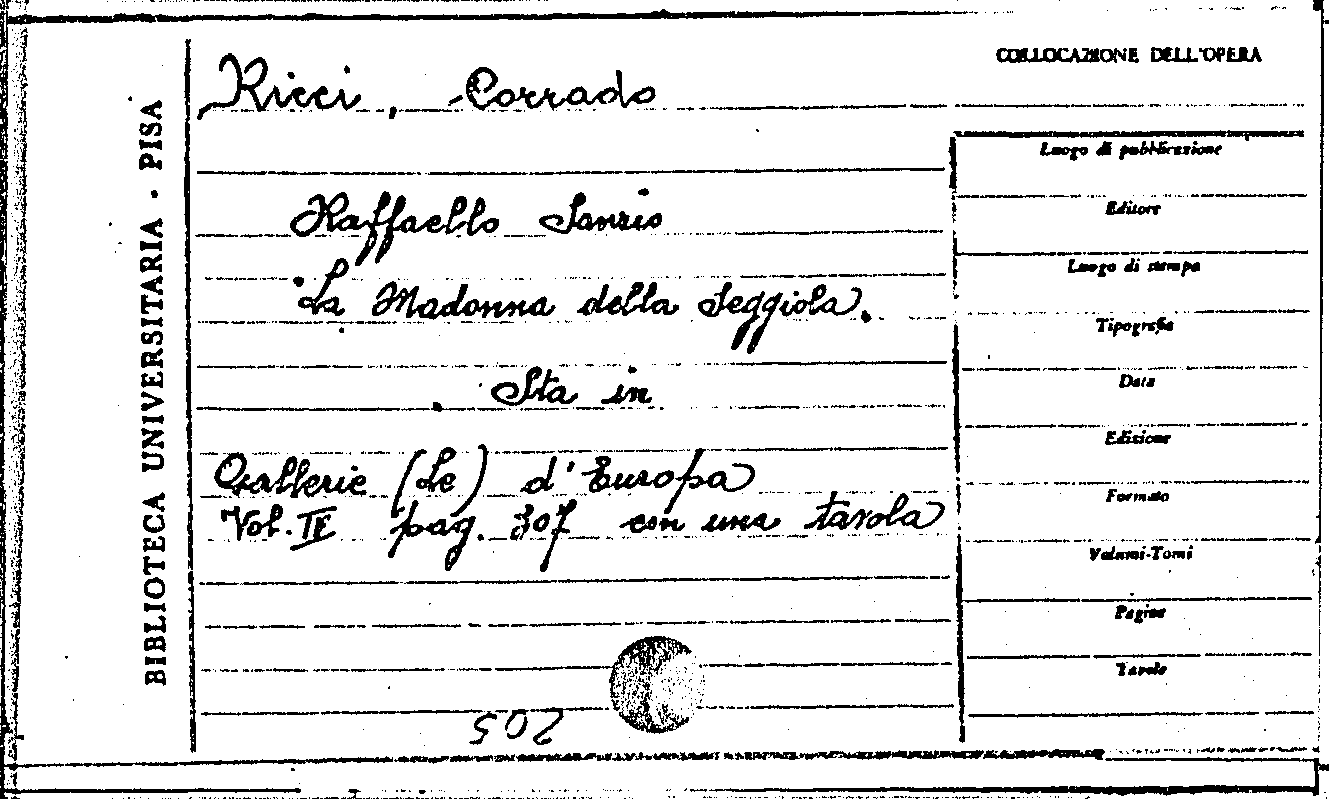 BIBLIOTECA UNIVERSITARIA - PISA
COLLOCAZIONE DELL'OPERA
Ricci, Corrado
Raffaello Sanzio
La Madonna della Seggiola.
Sta in
Gallerie (Le) d'Europa
Vol. II pag. 307 con una tavola
Luogo di pubblicazione
Editore
Luogo di stampa
Tipografia
Data
Edizione
Formato
Volumi-Tomi
Pagine
Tavole
205